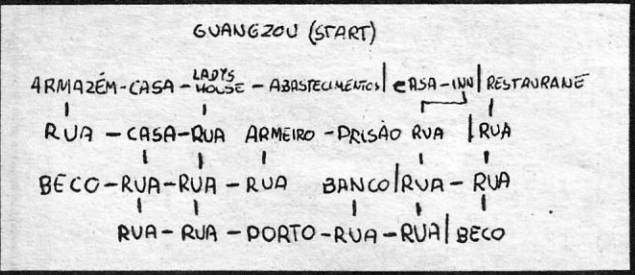 GUANGZOU (START)
ARMAZÉM - CASA - LADYS HOUSE - ABASTECIMENTOS | CASA - INN | RESTAURANE
RUA - CASA - RUA ARMEIRO - PRISÃO RUA | RUA
BECO - RUA - RUA - RUA BANCO | RUA - RUA
RUA - RUA - PORTO - RUA - RUA | BECO